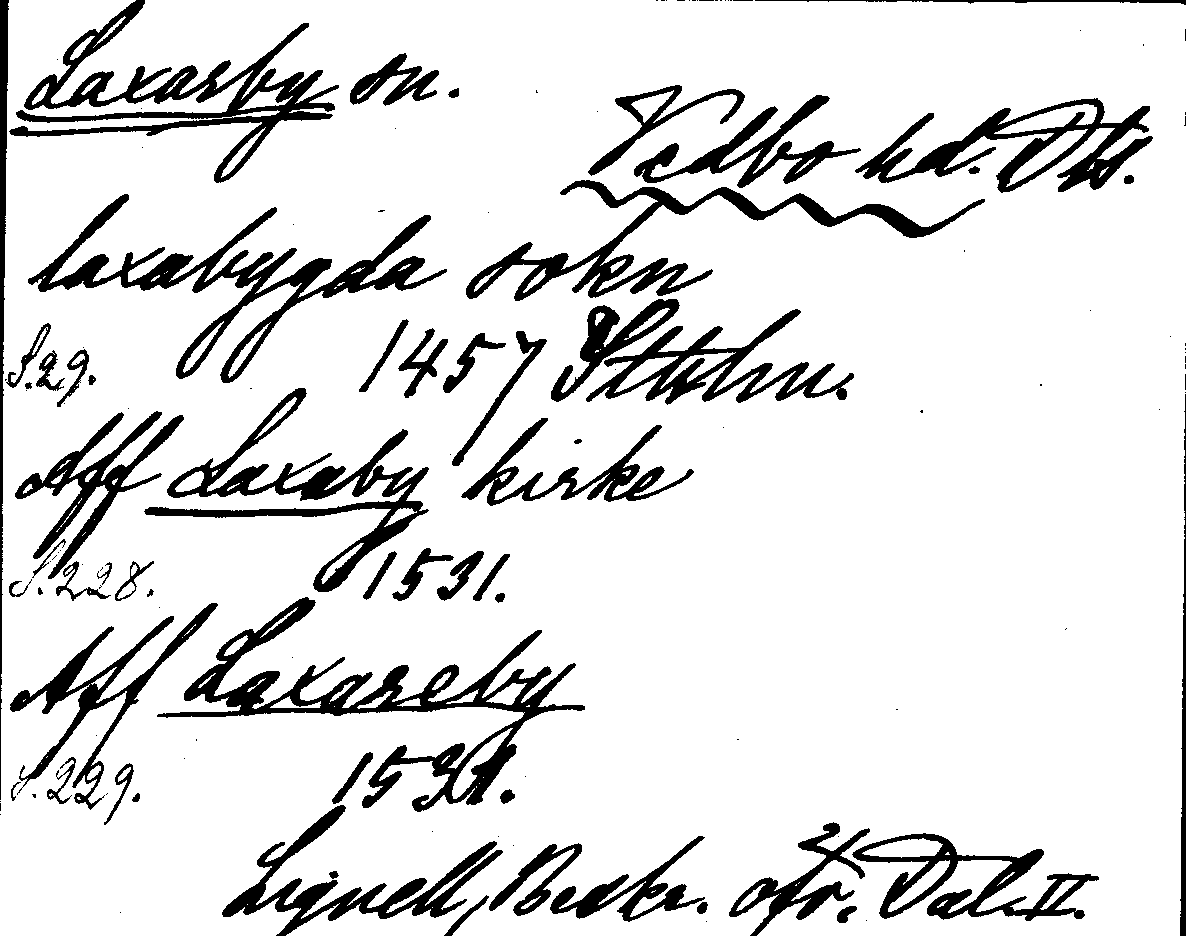 Laxarby sn.
Vedbo hd. Dls.
laxabygda sokn
S.29. 1457 Sthlm.
Aff Laxaby kirke
S.228. 1531.
Aff Laxareby
S.229. 1531.
Lignell, Beskr. öfr. Dal. II.